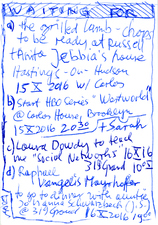 WAITING FOR
a) the grilled lamb-chops
to be ready at Russell
+ Anita Jebbia's house
Hastings-on-Hudson
15 X 2016 w/ Carlos
b) Start HBO Series "Westworld"
@ Carlos House, Brooklyn
15 X 2016 2030 + Sarah
c) Laura Dowdy to teach
me "Social Networks" 16 X 16
319 Grand 10
d) Raphael
Vangelis Mayrhofer
to go to dinner with auntie
Johanna Schwarzbeck
@ 319 Grand 16 X 2016